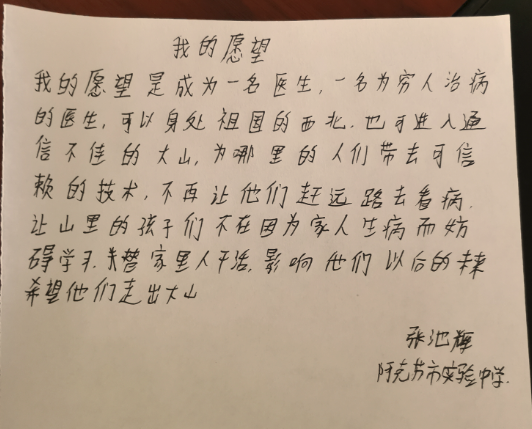 我的愿望
我的愿望是成为一名医生，一名为穷人治病
的医生，可以身处祖国的西北，也可进入通
信不佳的大山，为哪里的人们带去可信
赖的技术，不再让他们赶远路去看病.
让山里的孩子们不在因为家人生病而妨
碍学习.来替家里人干活，影响他们以后的未来
希望他们走出大山
张池辉
阿克苏市实验中学.